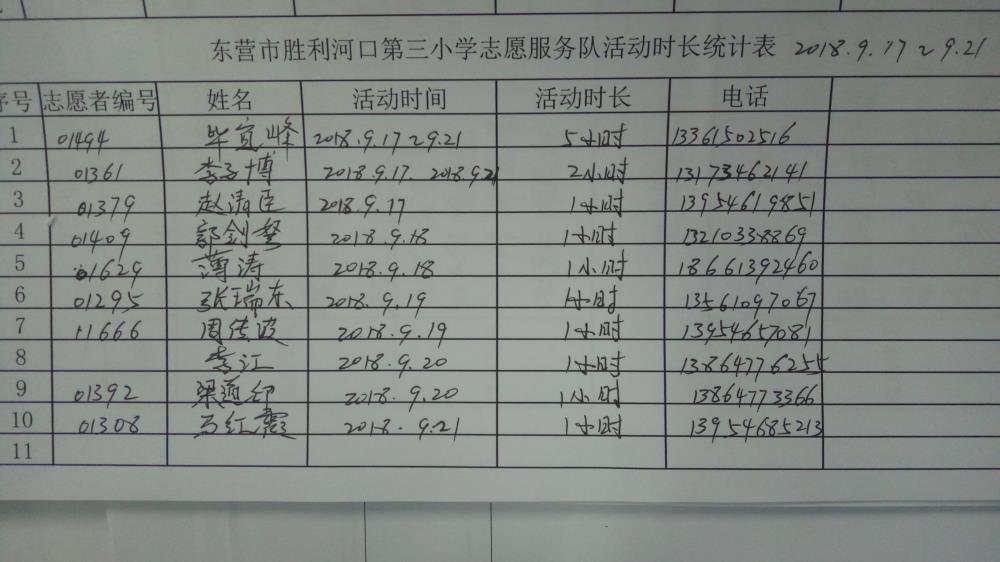 东营市胜利河口第三小学志愿服务队活动时长统计表 2018.9.17~9.21
序号 志愿者编号 姓名 活动时间 活动时长 电话
1 01494 毕宜峰 2018.9.17~9.21 5小时 13361502516
2 01361 李子博 2018.9.17. 2018.9.21 2小时 13173462141
3 01379 赵清臣 2018.9.17 1小时 13954619851
4 01409 郭剑 2018.9.18 1小时 13210338869
5 01629 薄涛 2018.9.18 1小时 18661392460
6 01295 张瑞东 2018.9.19 1小时 13561097067
7 11666 周传波 2018.9.19 1小时 13954657081
8 李江 2018.9.20 1小时 13864776255
9 01392 梁 2018.9.20 1小时 13864773366
10 01308 马红霞 2018.9.21 1小时 13954685213
11